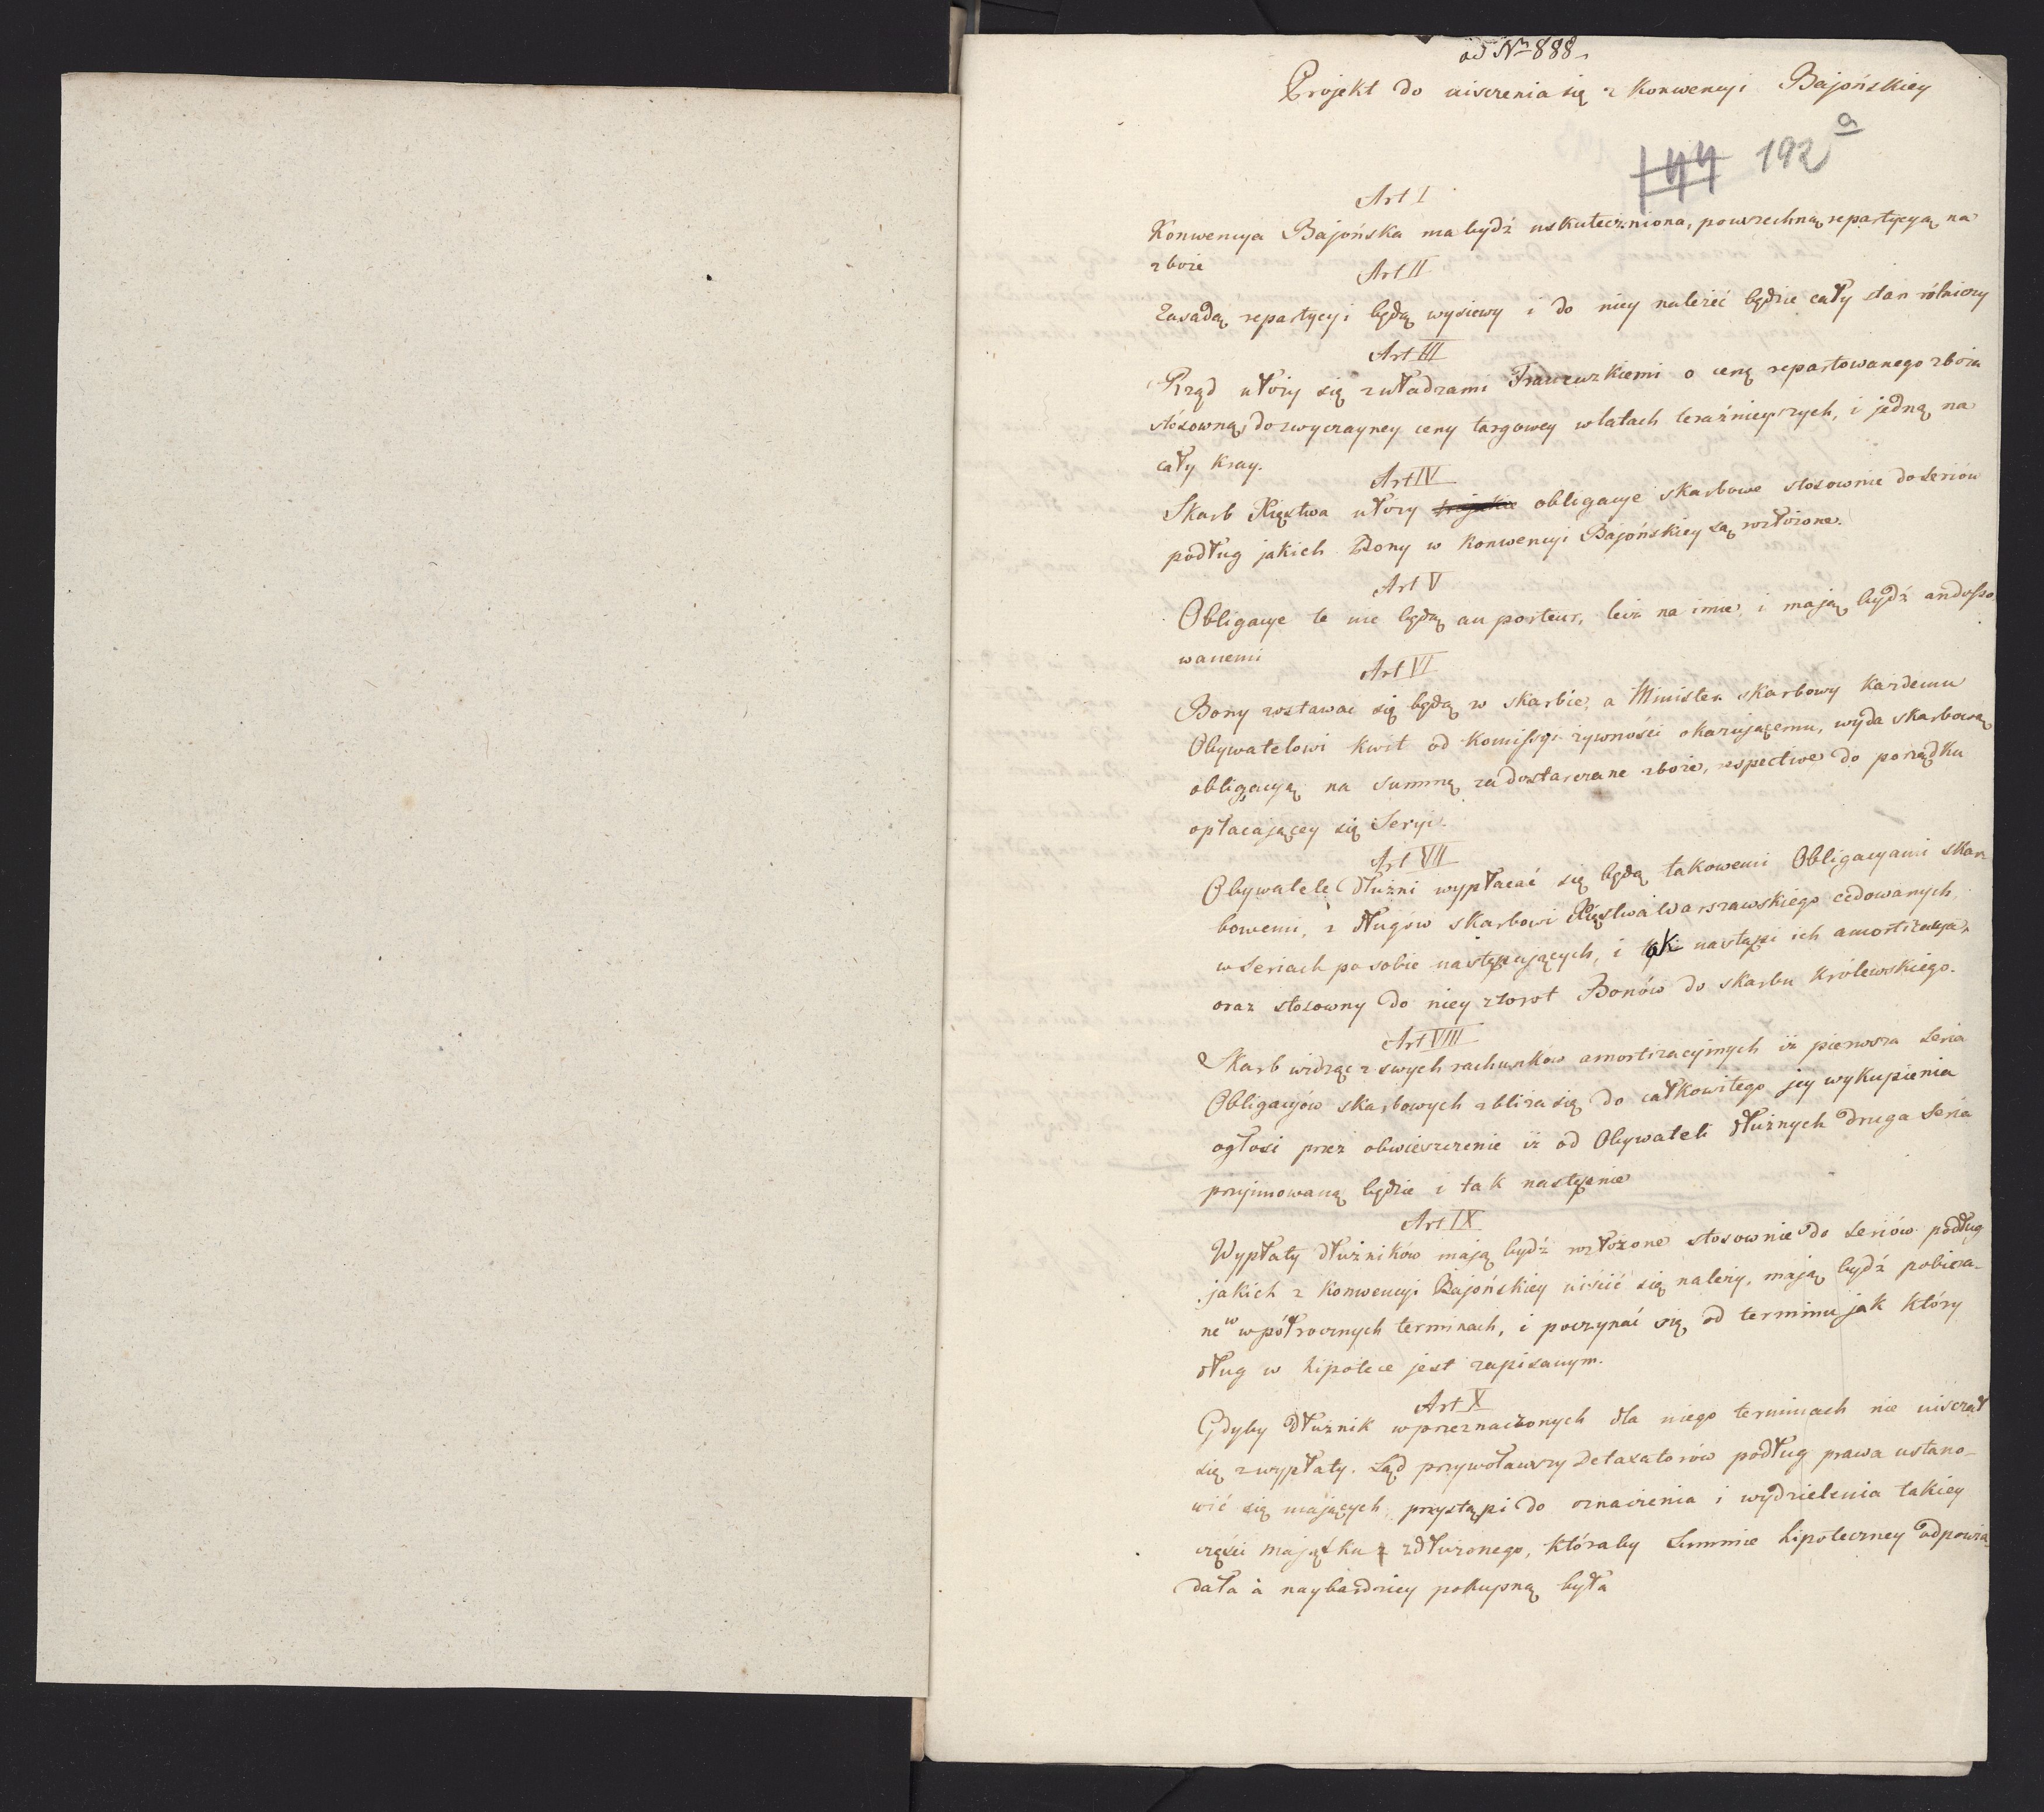 ad Nr 888.
Projekt do uisczenia się z Konwencyi Bajońskiey
144 192 a
Art I
Konwencya Bajońska ma bydź uskuteczniona, powszechną repartycyą na
zboże
Art II
Zasadą repartycyi będą wysiewy i do niey należeć będzie cały stan rólniczy
Art III
Rząd ułoży się z władzami Francuzkiemi o cenę repartowanego zboża
stósowną do zwyczayney ceny targowey w latach teraźnieyszych, i jedną na
cały Kray.
Art IV
Skarb Xięstwa utorzy obligacye skarbowe stosownie do Seriów
podług jakich Bony w Konwencyi Bajońskiey są rozłożone.
Art V
Obligacye te nie będą au porteur, lecz na imie, i mają bydź andosso-
wanemi
Art VI
Bony zostawać się będą w skarbie, a Minister skarbowy każdemu
Obywatelowi kwit od Komissyi żywności okazującemu, wyda skarbową
obligacyą na summę za dostarczane zboże, respective do porządku
opłacającey się Seryi.
Art VII
Obywatele Dłużni wypłacać się będą takowemi Obligacyami skar-
bowemi, z długów skarbowi Xięstwa Warszawskiego cedowanych,
w Seriach po sobie następujących, i tak nastąpi ich amortizacya,
oraz stosowny do niey zwrot Bonów do skarbu Królewskiego.
Art VIII
Skarb widząc z swych rachunków amortizacyjnych iż pierwsza Seria
Obligacyów skarbowych zbliża się do całkowitego jey wykupienia
ogłosi przez obwieszczenie iż od Obywateli dłużnych druga Seria
przyjmowaną będzie i tak następnie
Art IX
Wypłaty dłużników mają bydź rozłożone stosownie do Seriów podług
jakich z Konwencyi Bajońskiey uiścić się należy, mają bydź pobiera-
ne w wpółrocznych terminach, i poczynać się od terminu jak który
dług w hipotece jest zapisanym.
Art X
Gdyby Dłużnik w przeznaczonych dla niego terminach nie uisczał
się z wypłaty. Sąd przywoławszy Detaxatorów podług prawa ustano-
wić się mających, przystąpi do oznaczenia i wydzielenia takiey
części majątku z zdłużonego, któraby Summie hipoteczney odpowia-
dała a naybardziey pokupną była